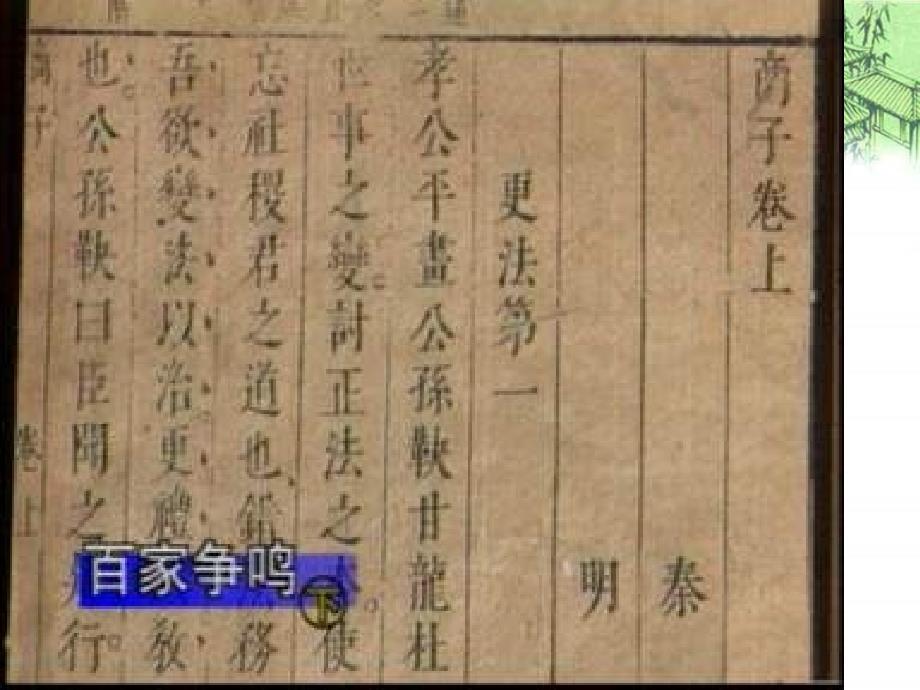 商子卷上
秦
明
更法第一
孝公平畫公孫鞅甘龍杜
世事之變討正法之 使
忘社稷君之道也錯 務
吾欲變法以治更禮 教
也公孫鞅曰臣聞之 行
商子
卷上
百家争鸣
下